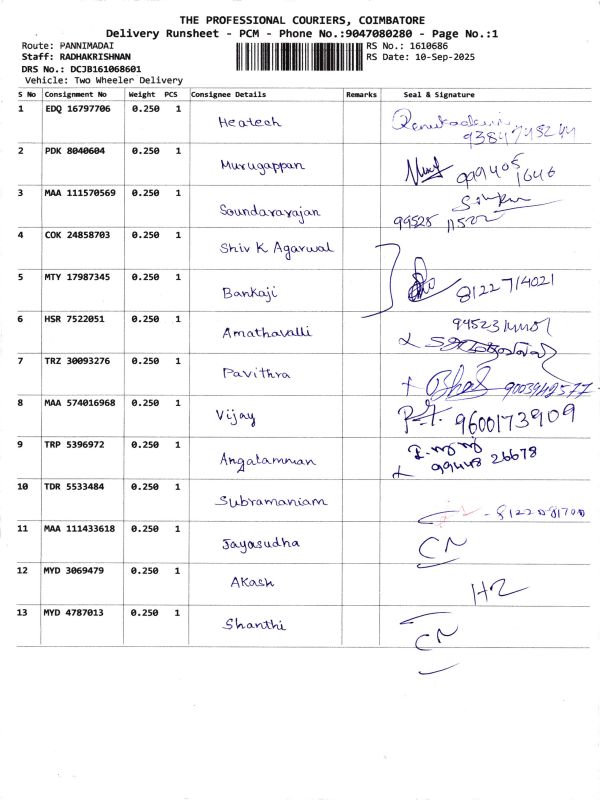 THE PROFESSIONAL COURIERS, COIMBATORE
Delivery Runsheet - PCM - Phone No.:9047080280 - Page No.:1
Route: PANNIMADAI
RS No.: 1610686
Staff: RADHAKRISHNAN
RS Date: 10-Sep-2025
DRS No.: DCJB161068601
Vehicle: Two Wheeler Delivery
S No Consignment No Weight PCS Consignee Details Remarks Seal & Signature
1 EDQ 16797706 0.250 1 Heatech
2 PDK 8040604 0.250 1 Murugappan 999405
1646
3 MAA 111570569 0.250 1 Soundararajan
99525 11522
4 COK 24858703 0.250 1 Shiv K Agarwal
5 MTY 17987345 0.250 1 Bankaji 8122714021
6 HSR 7522051 0.250 1 Amathavalli
7 TRZ 30093276 0.250 1 Pavithra
8 MAA 574016968 0.250 1 Vijay 9600173909
9 TRP 5396972 0.250 1 Angalamman
99448 26678
10 TDR 5533484 0.250 1 Subramaniam
11 MAA 111433618 0.250 1 Jayasudha CN
12 MYD 3069479 0.250 1 Akash
13 MYD 4787013 0.250 1 Shanthi CN